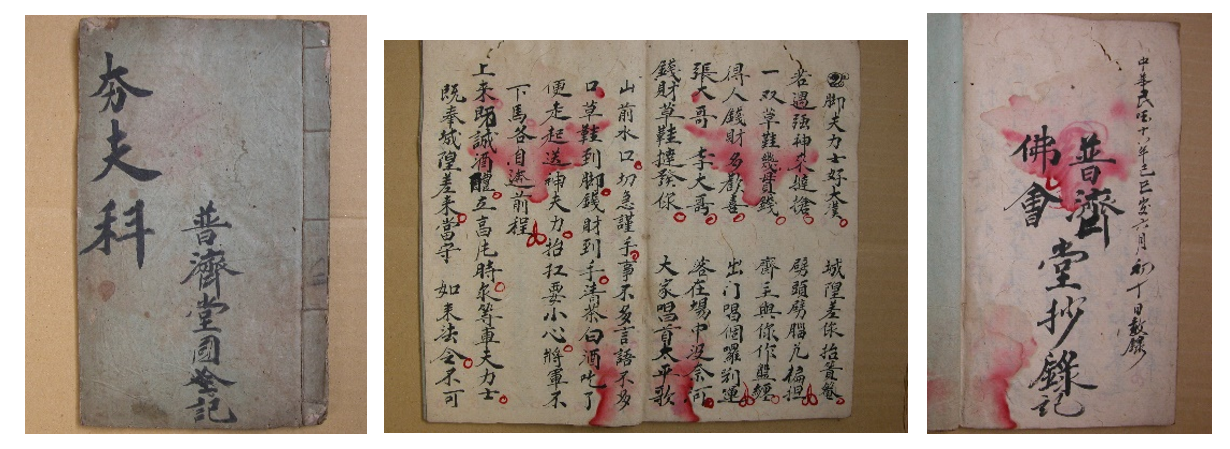 夯夫科
普濟堂國​記
脚夫力士好大漢 城隍差伱抬賞​
若遇强神來​搶 劈頭劈腦​匾担
一双草鞋​錢 齋主與伱作盤纏
得人錢財多歡喜 出门唱個囉​連
張大哥 李大哥 落在場中没奈何
錢財草鞋​發伱 大家唱首太平歌
山前水口切急謹 手事不多言語不多
口草鞋到脚錢財到手清茶白酒吃了
便走起送神夫力抬扛要小心將軍不
下馬各自​前程
上来​誠酒醴​時​等車夫力士
既奉城隍差来當守 如来法令不可
中華民​十八年己巳歲六月初丁日​錄
普濟堂抄錄記
佛會